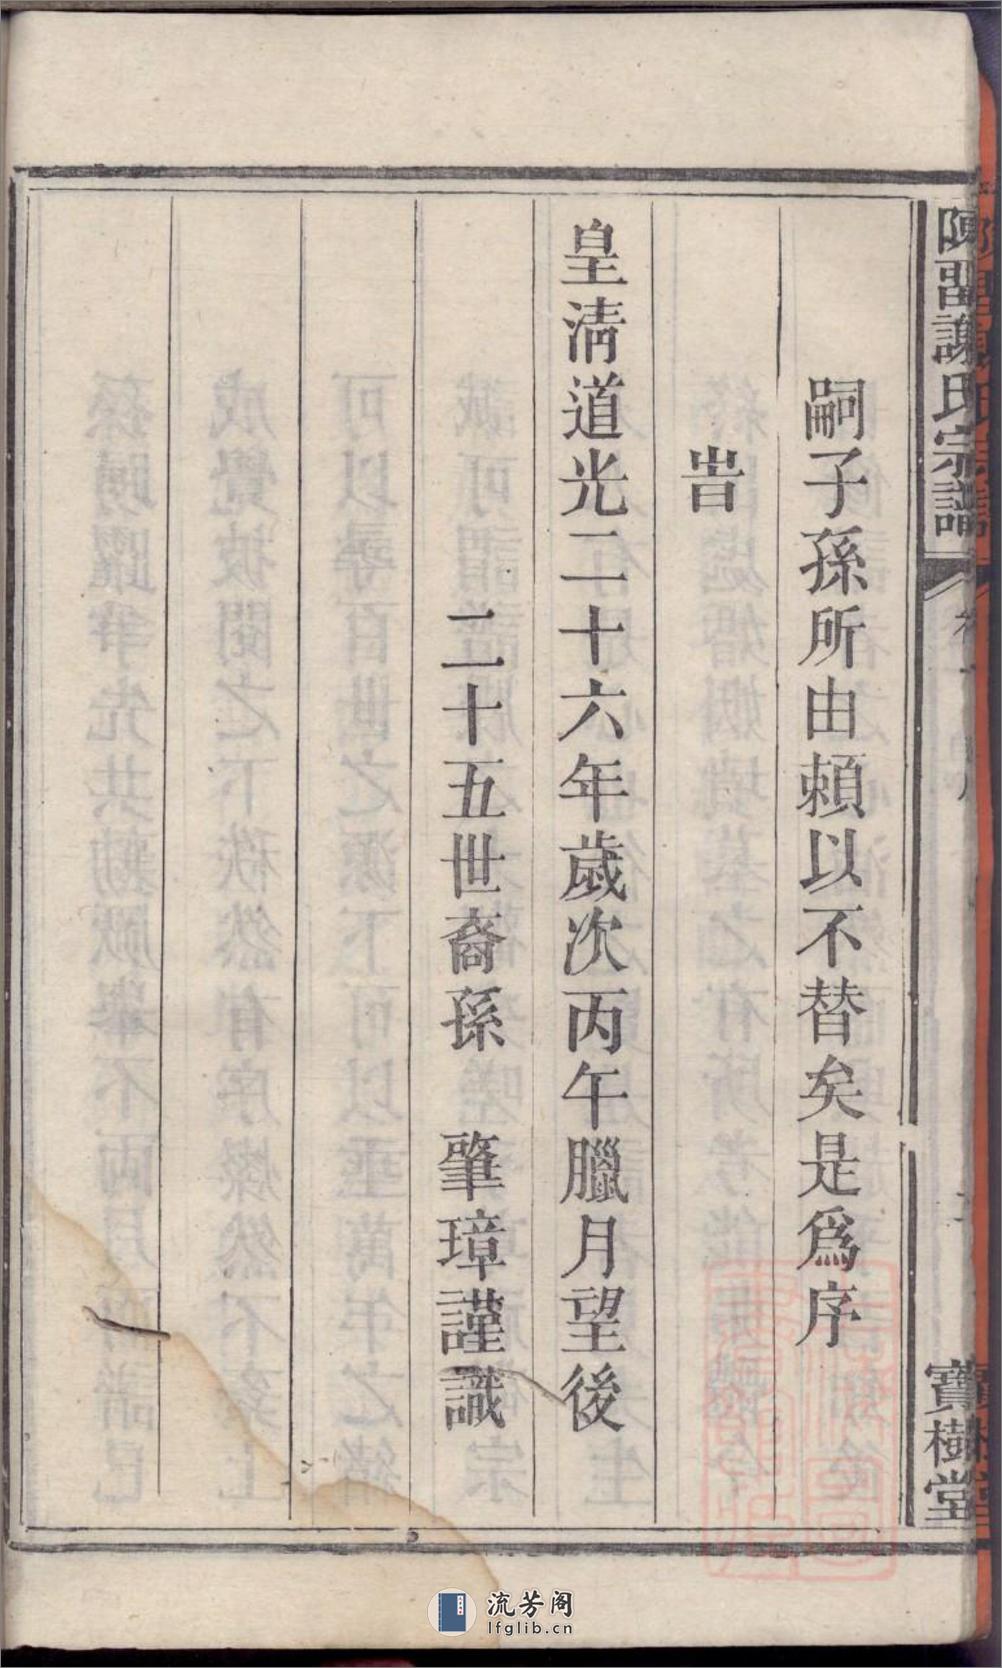 嗣子孫所由頼以不替矣是爲序
旹
皇清道光二十六年歲次丙午臘月望後
二十五世裔孫 肇璋謹識
陳畱謝氏宗譜
寶樹堂
流芳阁
lfglib.cn